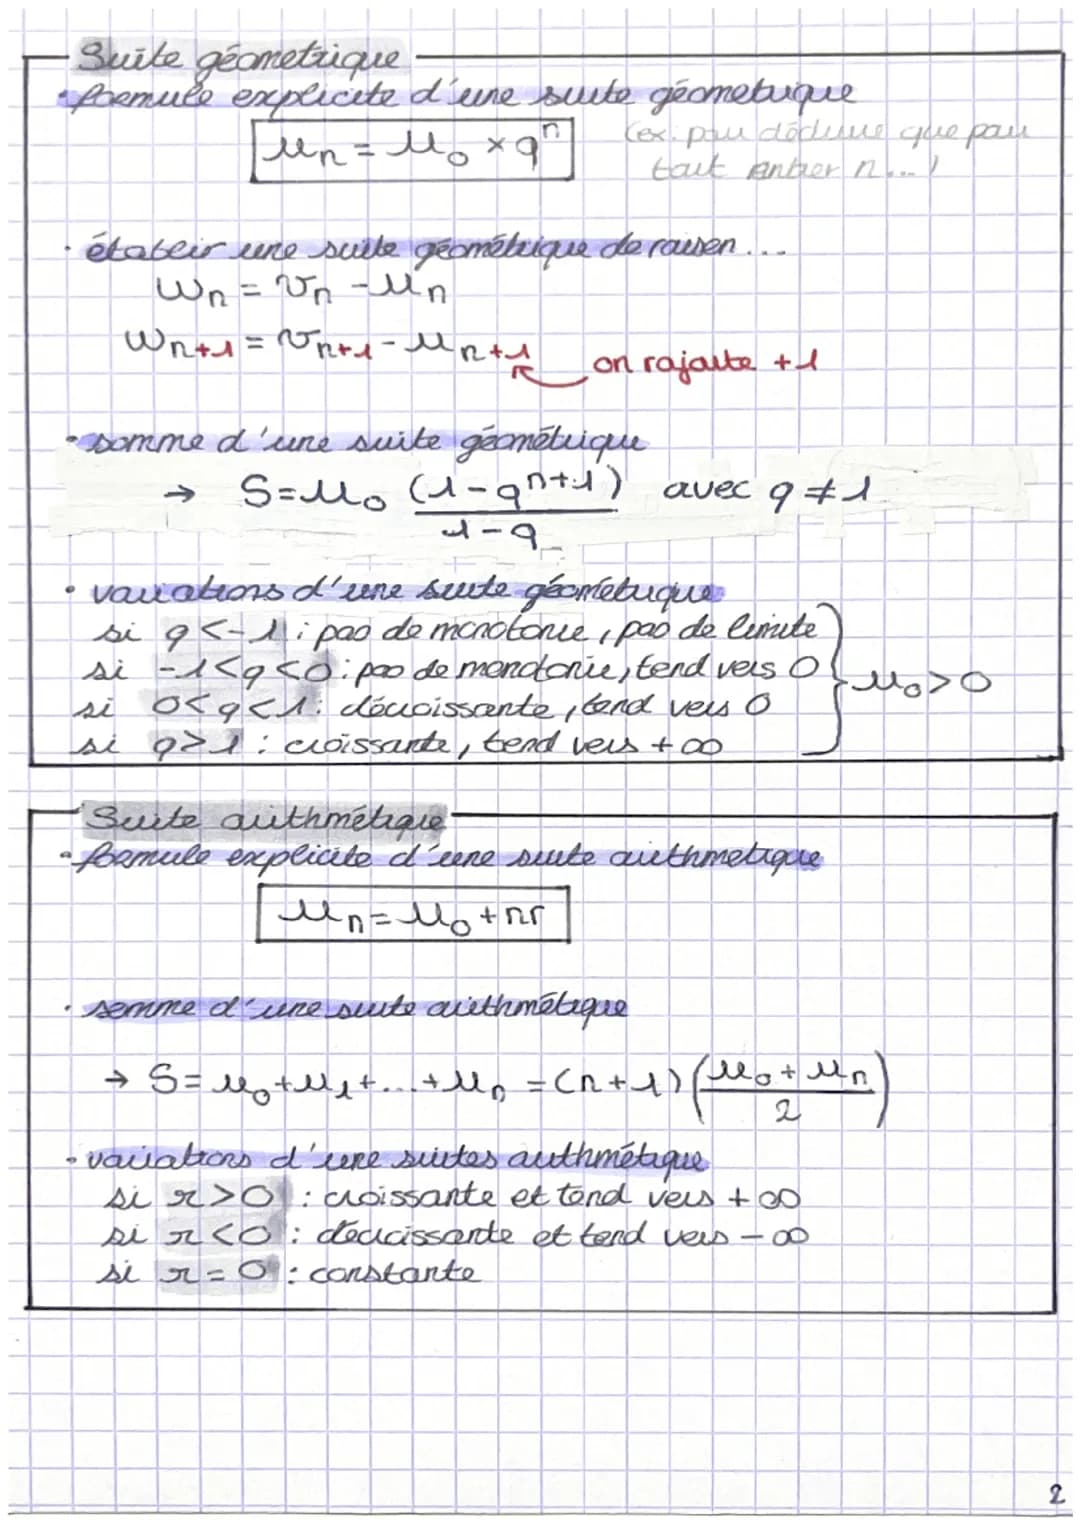 Suite géometrique
• formule explicite d'une suite géometrique
un = u0 × q^n
(ex: pour déduire que pour
tout entier n...)
• établir une suite géométrique de raison ...
wn = vn - un
wn+1 = vn+1 - un+1
on rajoute +1
• somme d'une suite géométrique
→ S = u0 (1-q^n+1)/(1-q) avec q ≠ 1
• variations d'une suite géométrique
si q<-1 : pas de monotonie, pas de limite
si -1<q<0 : pas de monotonie, tend vers 0
u0>0
si 0<q<1 : décroissante, tend vers 0
si q>1 : croissante, tend vers +∞
Suite arithmétique
• formule explicite d'une suite arithmetique
un = u0 + nr
• somme d'une suite arithmétique
→ S = u0+u1+...+un = (n+1) ((u0+un)/2)
• variations d'une suites arithmétique
si r>0 : croissante et tend vers +∞
si r<0 : decroissante et tend vers -∞
si r=0 : constante
2